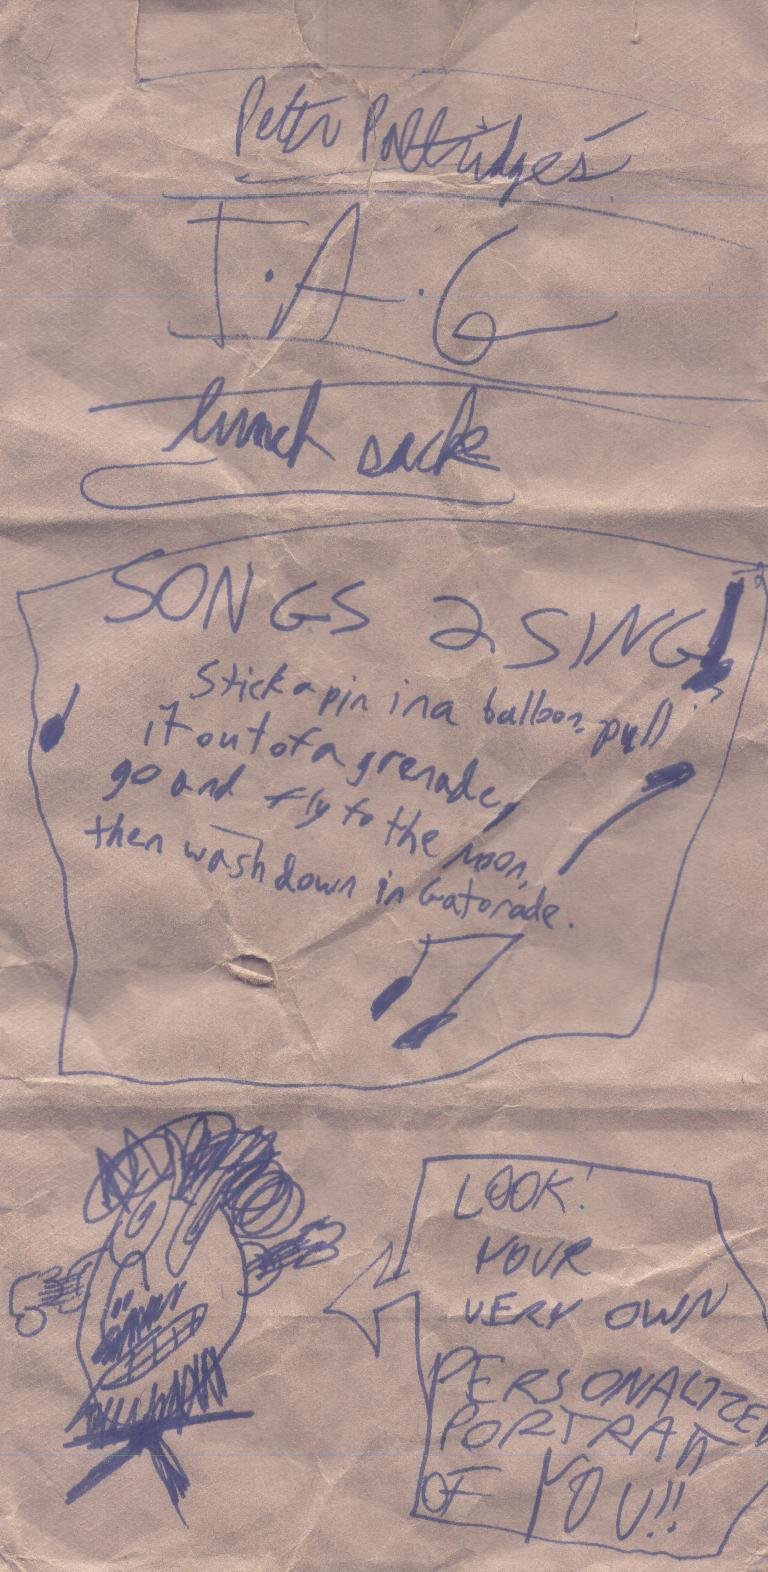 Peter Partridge's
I.A.G
lunch sack
SONGS 2 SING!
Stick a pin in a balloon, pull
it out of a grenade,
go and fly to the moon,
then wash down in Gatorade.
LOOK!
YOUR
VERY OWN
PERSONALIZED
PORTRAIT
OF YOU!!